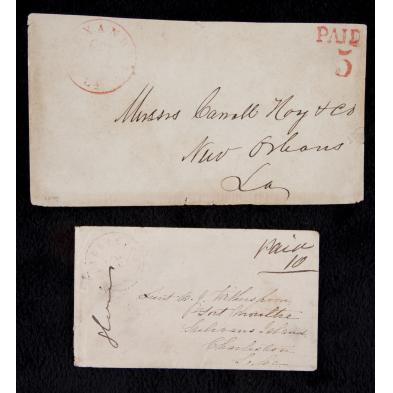 XAND
LA
PAID
5
Messrs Carroll Hoy & Co
New Orleans
La
Paid
10
Lieut
Fort Moultrie
Sullivans Island
Charleston
So. Ca.